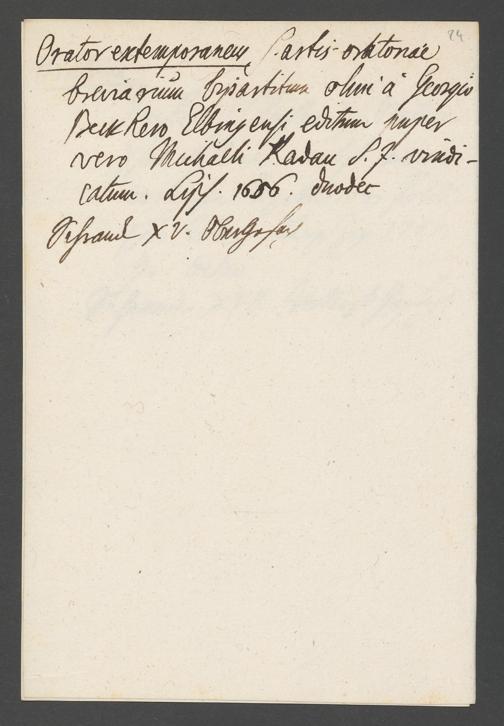 24
Orator extemporaneus S. artis oratoriae
breviarium bipartitum olim à Georgio
Beckkero Elbingensi editum nuper
vero Michaeli Radau S. J. vindi-
catum. Lips. 1656. duodec
XV.